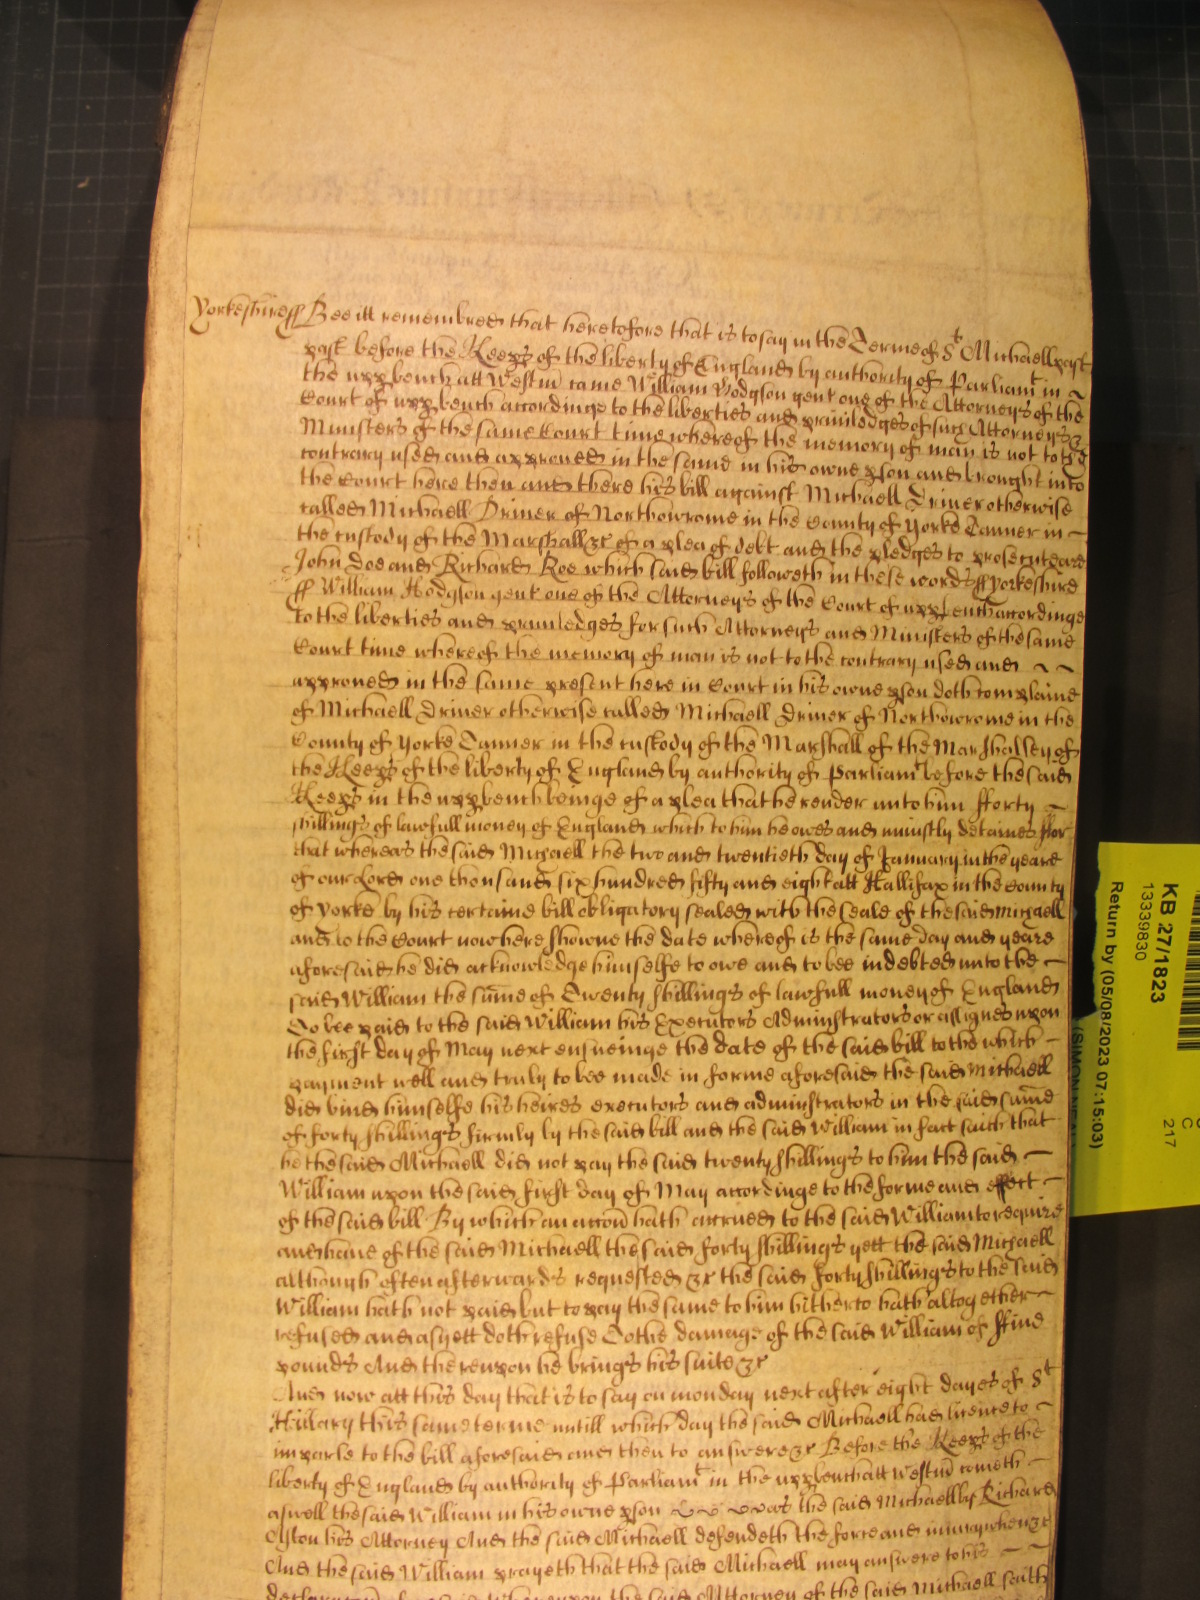 Yorkeshire ss Bee itt remembred that heretofore that is to say in the Terme of St Michaell past
past before the Keeps of the liberty of England by authority of Parliamt in
the upp bench att Westm came William Hodgson gent one of the Attorneys of the
Court of upp bench accordinge to the liberties and priviledges of such Attorneys &
Ministers of the same Court time whereof the memory of man is not to the
contrary used and approued in the same in his owne pson and brought into
the Court here then and there his bill against Michaell Driuer otherwise
called Michaell Driuer of Northowrome in the County of Yorke Tanner in
the custody of the Marshall &c of a plea of debt and the pledges to prosecute are
John Doe and Richard Roe which said bill followeth in these words ss Yorkeshire
ss William Hodgson gent one of the Attorneys of the Court of upp bench accordinge
to the liberties and priuiledges for such Attorneys and Ministers of the same
Court time whereof the memory of man is not to the contrary used and
approued in the same present here in Court in his owne pson doth complaine
of Michaell Driuer otherwise called Michaell Driuer of Northowrome in the
County of Yorke Tanner in the custody of the Marshall of the Marshalsey of
the Keeps of the liberty of England by authority of Parliamt before the said
Keeps in the upp bench beinge of a plea that he render unto him fforty
shillings of lawfull money of England which to him he owes and uniustly detaines ffor
that whereas the said Michaell the two and twentieth day of January in the yeare
of our Lord one thousand six hundred fifty and eight att Hallifax in the County
of Yorke by his certaine bill obligatory sealed with the seale of the said Michaell
and to the Court now here showne the date whereof is the same day and yeare
aforesaid he did acknowledge himselfe to owe and to bee indebted unto the
said William the sume of Twenty shillings of lawfull money of England
To bee paid to the said William his Executors Administrators or assignes upon
the first day of May next ensueinge the date of the said bill to the which
payment well and truly to bee made in forme aforesaid the said Michaell
did bind himselfe his heires executors and administrators in the said sume
of forty shillings firmly by the said bill and the said William in fact saith that
he the said Michaell did not pay the said twenty shillings to him the said
William upon the said first day of May accordinge to the forme and effect
of the said bill By which an accon hath accrued to the said William to require
and haue of the said Michaell the said forty shillings yett the said Michaell
although often afterwards requested &c the said forty shillings to the said
William hath not paid but to pay the same to him hitherto hath altogether
refused and as yett doth refuse To the damage of the said William of ffiue
pounds And thereupon he brings his suite &c
And now att this day that is to say on monday next after eight dayes of St
Hillary this same terme untill which day the said Michaell had licence to
imparle to the bill aforesaid and then to answere &c Before the Keeps of the
liberty of England by authority of Parliamt in the upp bench att Westm cometh
aswell the said William in his owne pson as the said Michaell by Richard
Aston his Attorney And the said Michaell defendeth the force and iniury when &c
And the said William prayeth that the said Michaell may answere to his
the said Attorney of the said Michaell saith
KB 27/1823
13339830
Return by (05/08/2023 07:15:03)
C
217